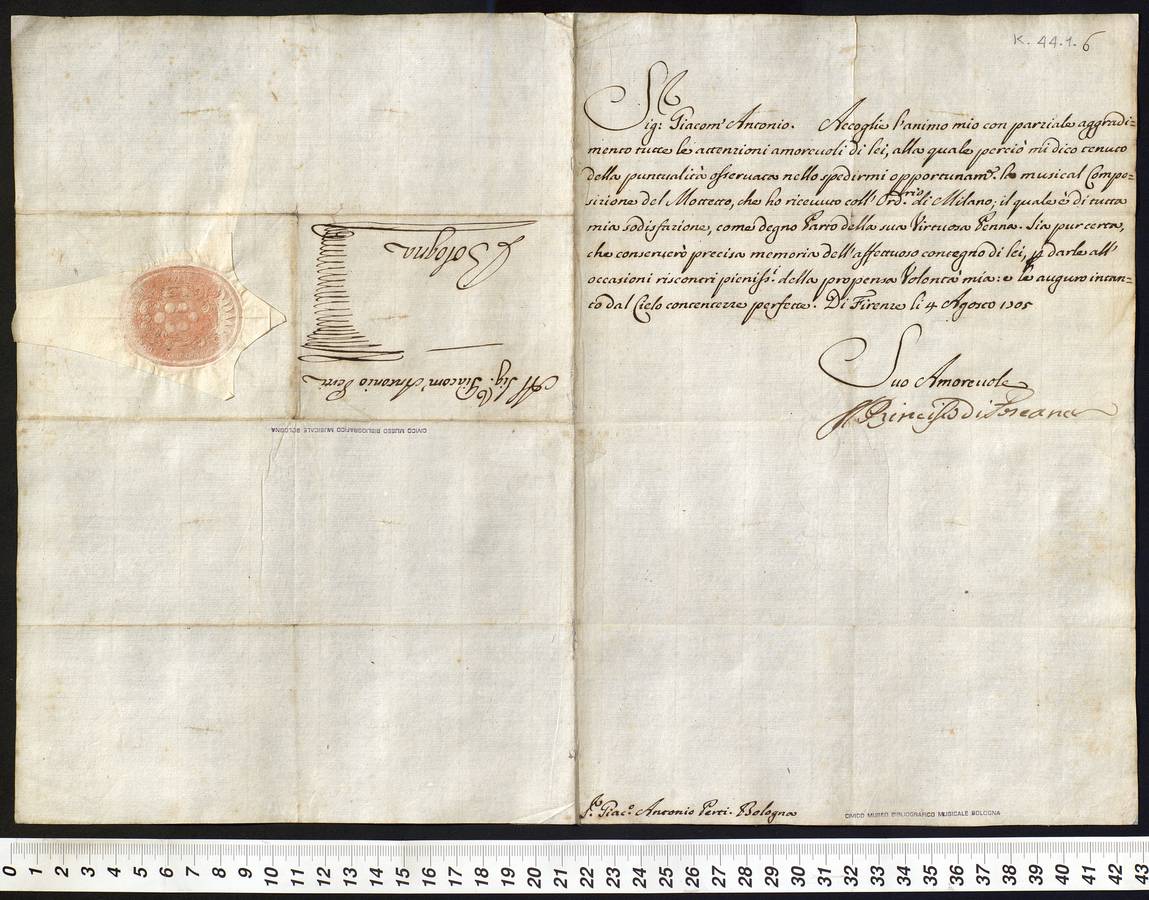 K. 44.1.6
Sig.r Giacom' Antonio. Accoglie l'animo mio con parziale aggradi=
mento tutte le attenzioni amorevoli di lei, alla quale perciò mi dico tenuto
della puntualità osservata nello spedirmi opportunam.e la musical Compo=
sizione del Mottetto, che ho ricevuto coll' Ord.rio di Milano; il quale è di tutta
mia sodisfazione, come degno Parto della sua Virtuosa Penna. Sia pur certa,
che conserverò precisa memoria dell'affettuoso contegno di lei, p darle all'
occasioni riscontri pieniss.i della propensa Volontà mia: e le auguro intan=
to dal Cielo contentezze perfette. Di Firenze li 4 Agosto 1705
Suo Amorevole
Il Principe di Toscana
S.r Giac.o Antonio Perti. Bologna
CIVICO MUSEO BIBLIOGRAFICO MUSICALE BOLOGNA
Al Sig.r Giacom' Antonio Perti
Bologna
CIVICO MUSEO BIBLIOGRAFICO MUSICALE BOLOGNA
0 1 2 3 4 5 6 7 8 9 10 11 12 13 14 15 16 17 18 19 20 21 22 23 24 25 26 27 28 29 30 31 32 33 34 35 36 37 38 39 40 41 42 43